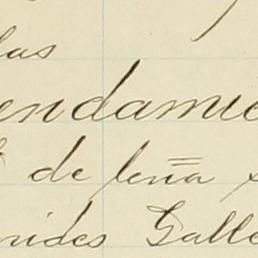 las
endamie
de leña
rides Galle